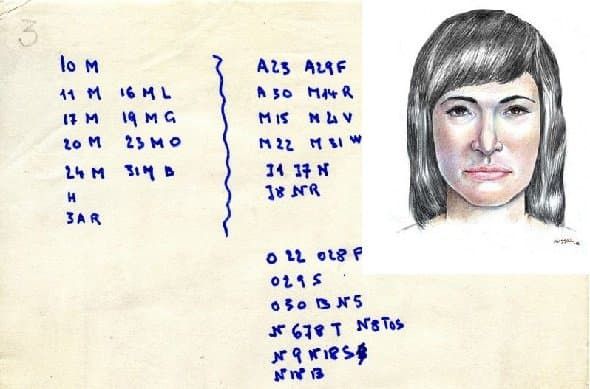 3
10 M
11 M 16 M L
17 M 19 M G
20 M 23 M O
24 M 31 M B
H
3 A R
A 23 A 29 F
A 30 M 14 R
M 15 M 21 V
M 22 M 31 W
J 1 J 7 N
J 8 N R
O 22 O 28 P
O 29 S
O 30 B N 5
N 6 7 8 T N 8 TOS
N 9 N 18 S
N 18 B